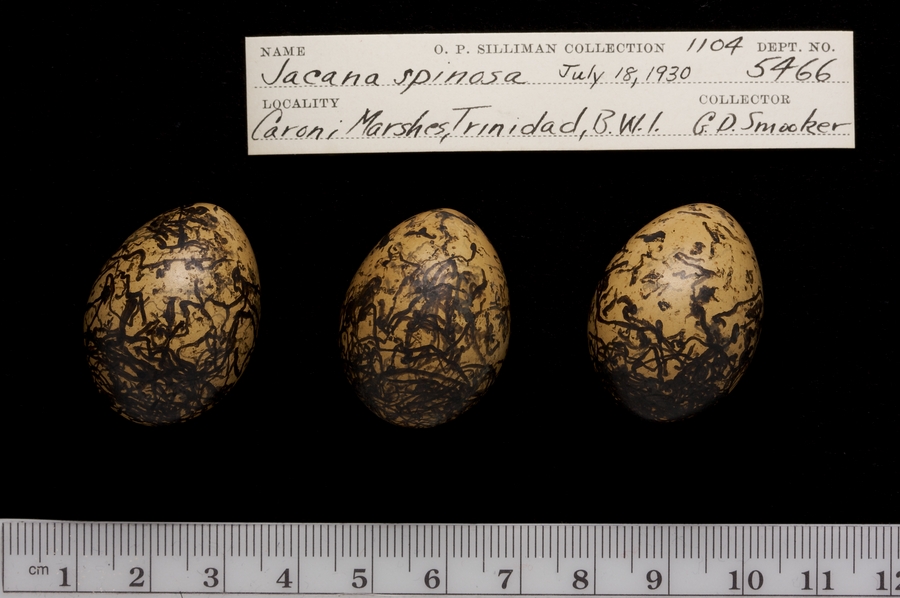 NAME O. P. SILLIMAN COLLECTION 1104 DEPT. NO.
Jacana spinosa July 18, 1930 5466
LOCALITY COLLECTOR
Caroni Marshes, Trinidad, B.W.I. G.D. Smooker
cm 1 2 3 4 5 6 7 8 9 10 11 12